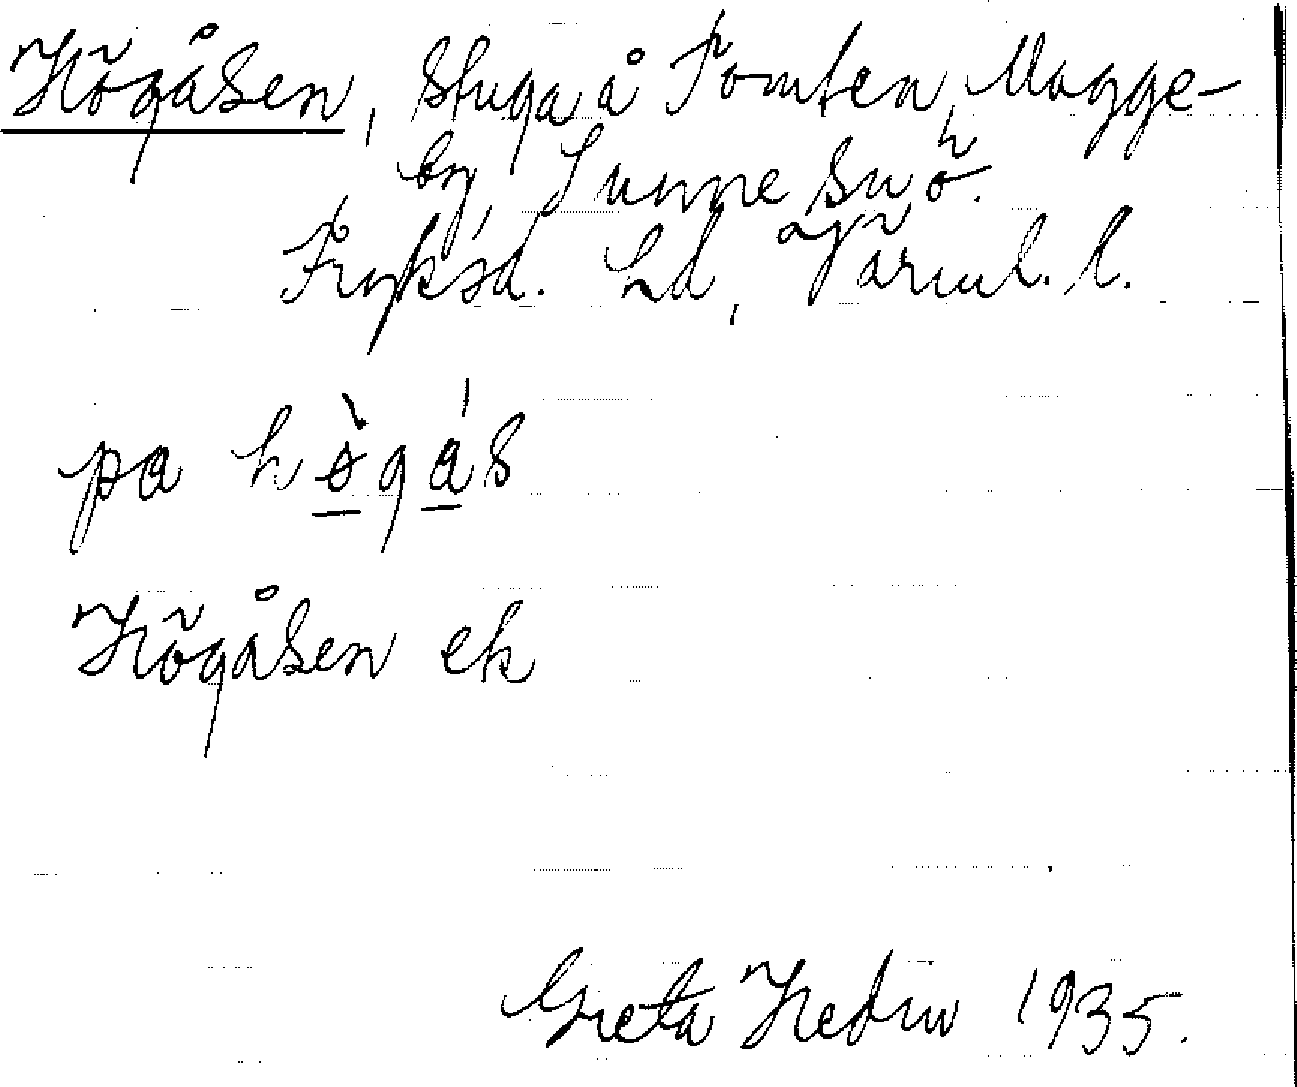 Högåsen, stuga å Tomten, Magge-
by, Sunne sn ö.
Fryksd. hd, Värml. l.
pa högås
Högåsen ek
Greta Hedin 1935.